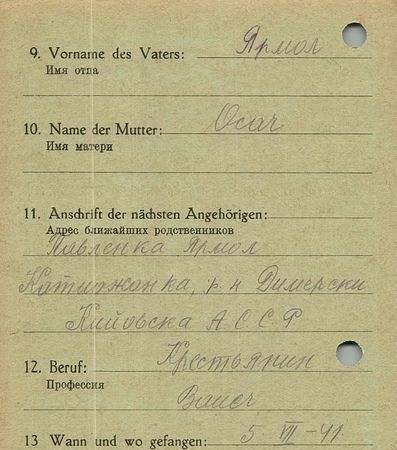 9. Vorname des Vaters: Ярмол
Имя отца
10. Name der Mutter: Осач
Имя матери
11. Anschrift der nächsten Angehörigen:
Адрес ближайших родственников
Павленка Ярмол
Катижанка, р-н Димерски
Кийовска А С С Р
12. Beruf: Крестьянин
Профессия
Bauer
13 Wann und wo gefangen: 5 VII - 41.